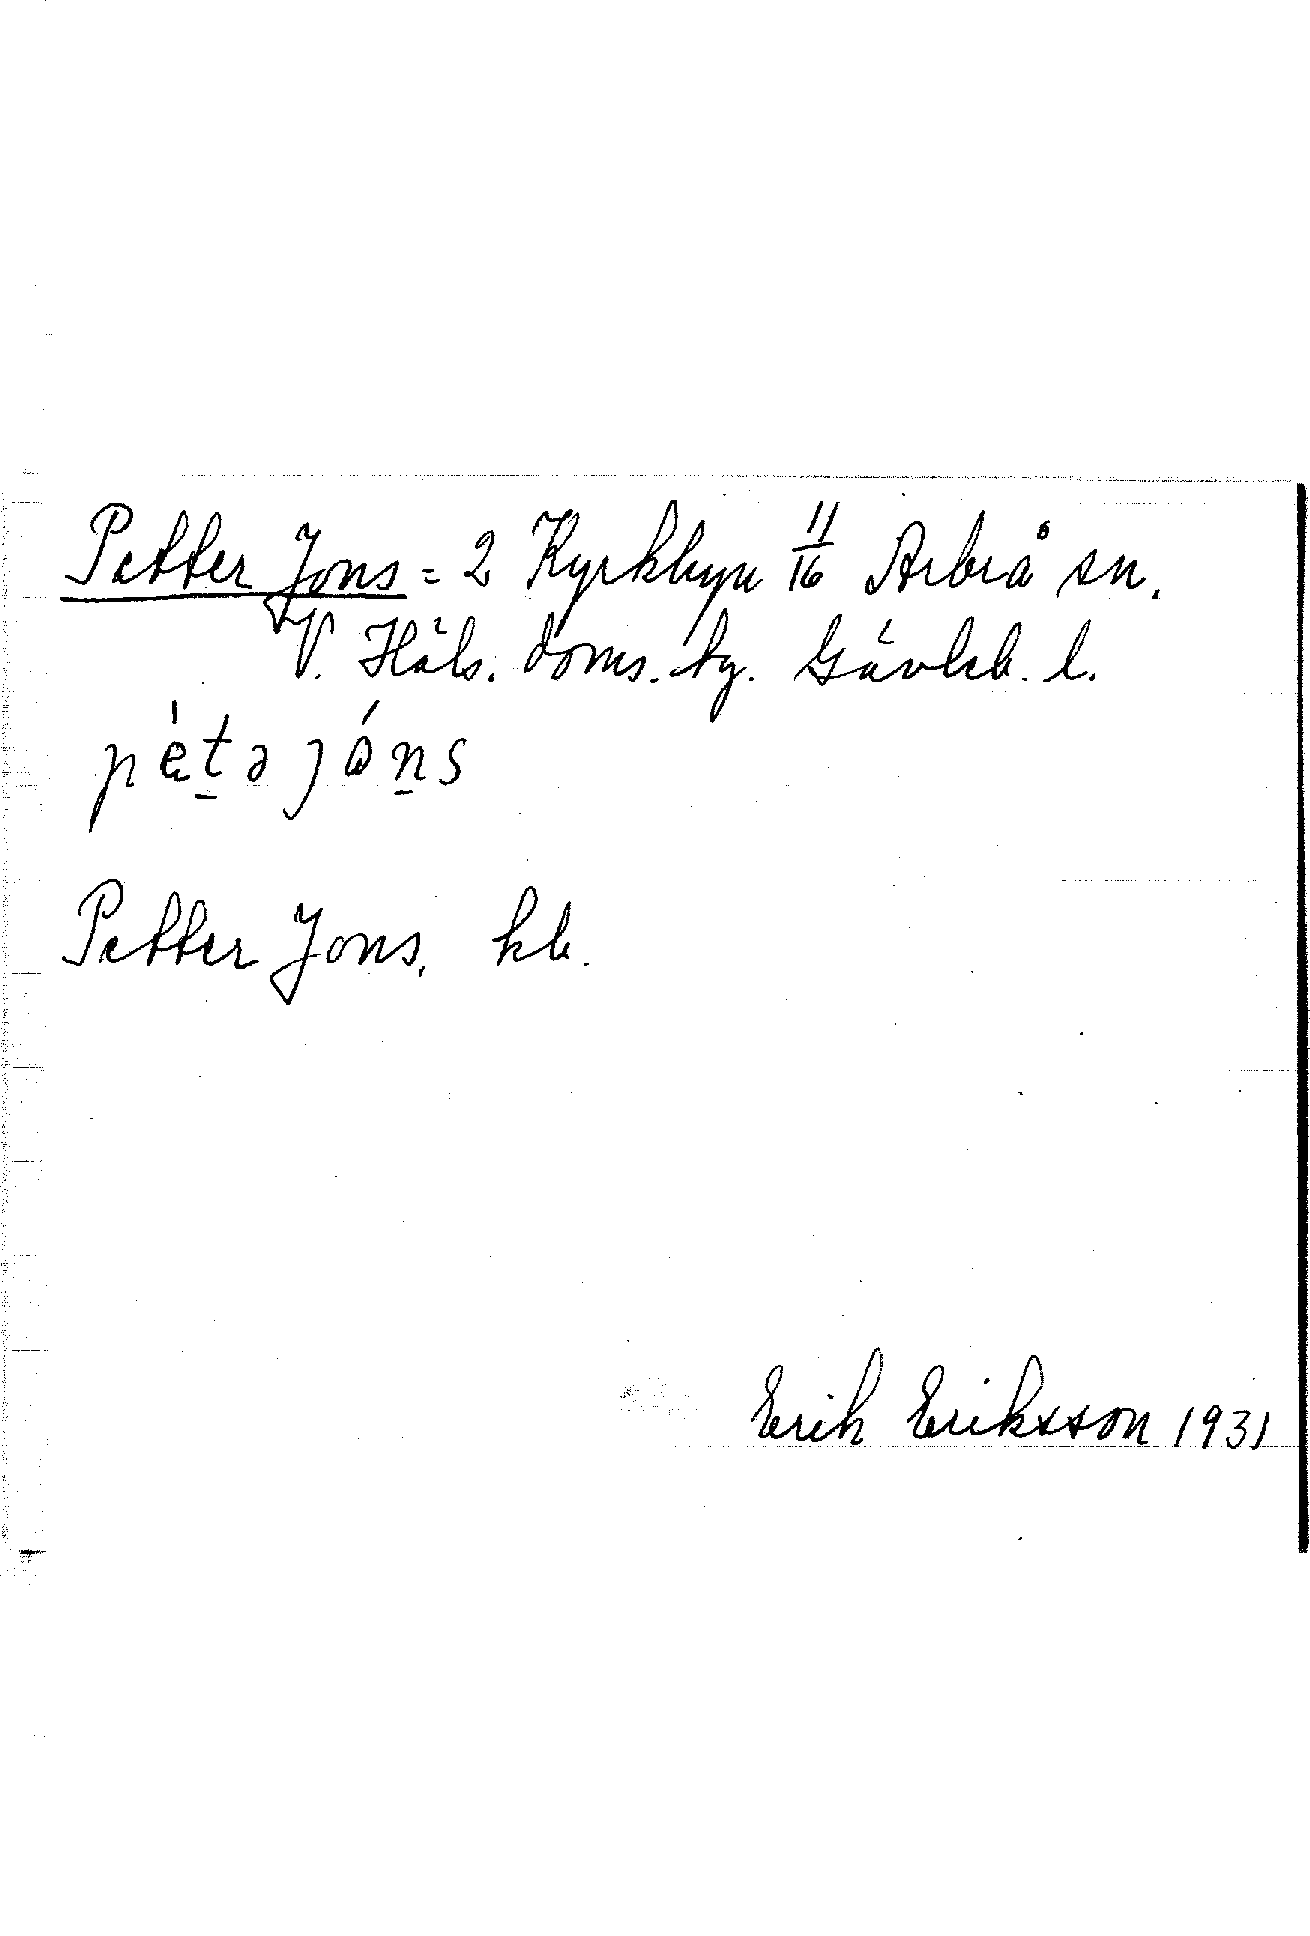 Petter Jons = 2 Kyrkbyn 11/16 Arbrå sn.
V. Häls. doms. tg. Gävleb. l.
pètə jóns
Petter Jons, kb.
Erik Eriksson 1931